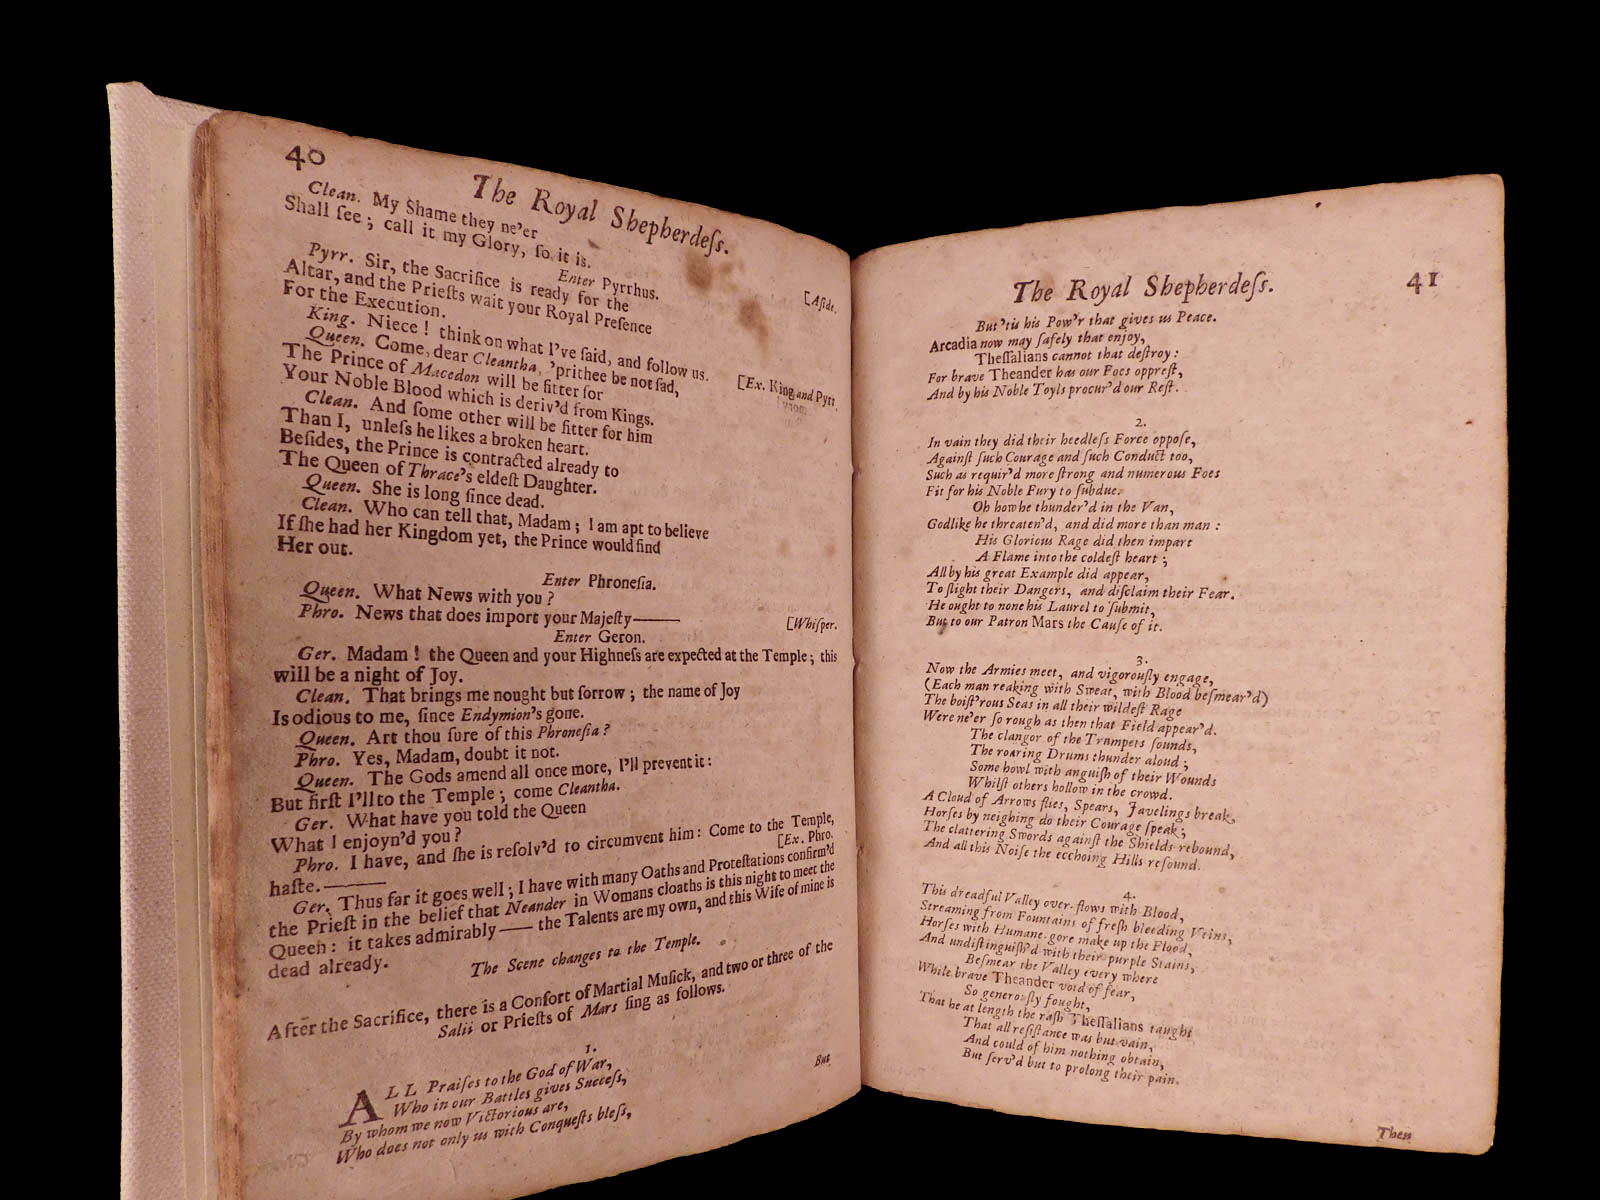 40
The Royal Shepherdeſs.
Clean. My Shame they ne'er
Shall ſee; call it my Glory, ſo it is.
Enter Pyrrhus.
Pyrr. Sir, the Sacrifice is ready for the [Aſide.
Altar, and the Prieſts wait your Royal Preſence
For the Execution.
King. Niece! think on what I've ſaid, and follow us.
[Ex. King and Pyrr.
Queen. Come, dear Cleantha, 'prithee be not ſad,
The Prince of Macedon will be fitter for
Your Noble Blood which is deriv'd from Kings.
Clean. And ſome other will be fitter for him
Than I, unleſs he likes a broken heart.
Beſides, the Prince is contracted already to
The Queen of Thrace's eldeſt Daughter.
Queen. She is long ſince dead.
Clean. Who can tell that, Madam; I am apt to believe
If ſhe had her Kingdom yet, the Prince would find
Her out.
Enter Phroneſia.
Queen. What News with you?
Phro. News that does import your Majeſty—— [Whiſper.
Enter Geron.
Ger. Madam! the Queen and your Highneſs are expected at the Temple; this
will be a night of Joy.
Clean. That brings me nought but ſorrow; the name of Joy
Is odious to me, ſince Endymion's gone.
Queen. Art thou ſure of this Phroneſia?
Phro. Yes, Madam, doubt it not.
Queen. The Gods amend all once more, I'll prevent it:
But firſt I'll to the Temple; come Cleantha.
Ger. What have you told the Queen
What I enjoyn'd you?
Phro. I have, and ſhe is reſolv'd to circumvent him: Come to the Temple,
haſte.—— [Ex. Phro.
Ger. Thus far it goes well; I have with many Oaths and Proteſtations confirm'd
the Prieſt in the belief that Neander in Womans cloaths is this night to meet the
Queen: it takes admirably—— the Talents are my own, and this Wife of mine is
dead already.
The Scene changes to the Temple.
After the Sacrifice, there is a Conſort of Martial Muſick, and two or three of the
Salii or Prieſts of Mars ſing as follows.
1.
ALL Praiſes to the God of War,
Who in our Battles gives Succeſs,
By whom we now Victorious are,
Who does not only us with Conqueſts bleſs,
But
The Royal Shepherdeſs.
41
But 'tis his Pow'r that gives us Peace.
Arcadia now may ſafely that enjoy,
Theſſalians cannot that deſtroy:
For brave Theander has our Foes oppreſt,
And by his Noble Toyls procur'd our Reſt.
2.
In vain they did their heedleſs Force oppoſe,
Againſt ſuch Courage and ſuch Conduct too,
Such as requir'd more ſtrong and numerous Foes
Fit for his Noble Fury to ſubdue.
Oh how he thunder'd in the Van,
Godlike he threaten'd, and did more than man:
His Glorious Rage did then impart
A Flame into the coldeſt heart;
All by his great Example did appear,
To ſlight their Dangers, and diſclaim their Fear.
He ought to none his Laurel to ſubmit,
But to our Patron Mars the Cauſe of it.
3.
Now the Armies meet, and vigorouſly engage,
(Each man reaking with Sweat, with Blood beſmear'd)
The boiſt'rous Seas in all their wildeſt Rage
Were ne'er ſo rough as then that Field appear'd.
The clangor of the Trumpets ſounds,
The roaring Drums thunder aloud;
Some howl with anguiſh of their Wounds
Whilſt others hollow in the crowd.
A Cloud of Arrows flies, Spears, Javelings break,
Horſes by neighing do their Courage ſpeak;
The clattering Swords againſt the Shields rebound,
And all this Noiſe the ecchoing Hills reſound.
4.
This dreadful Valley over-flows with Blood,
Streaming from Fountains of freſh bleeding Veins,
Horſes with Humane gore make up the Flood,
And undiſtinguiſh'd with their purple Stains,
Beſmear the Valley every where
While brave Theander void of fear,
So generouſly fought,
That he at length the raſh Theſſalians taught
That all reſiſtance was but vain,
And could of him nothing obtain,
But ſerv'd but to prolong their pain.
Then